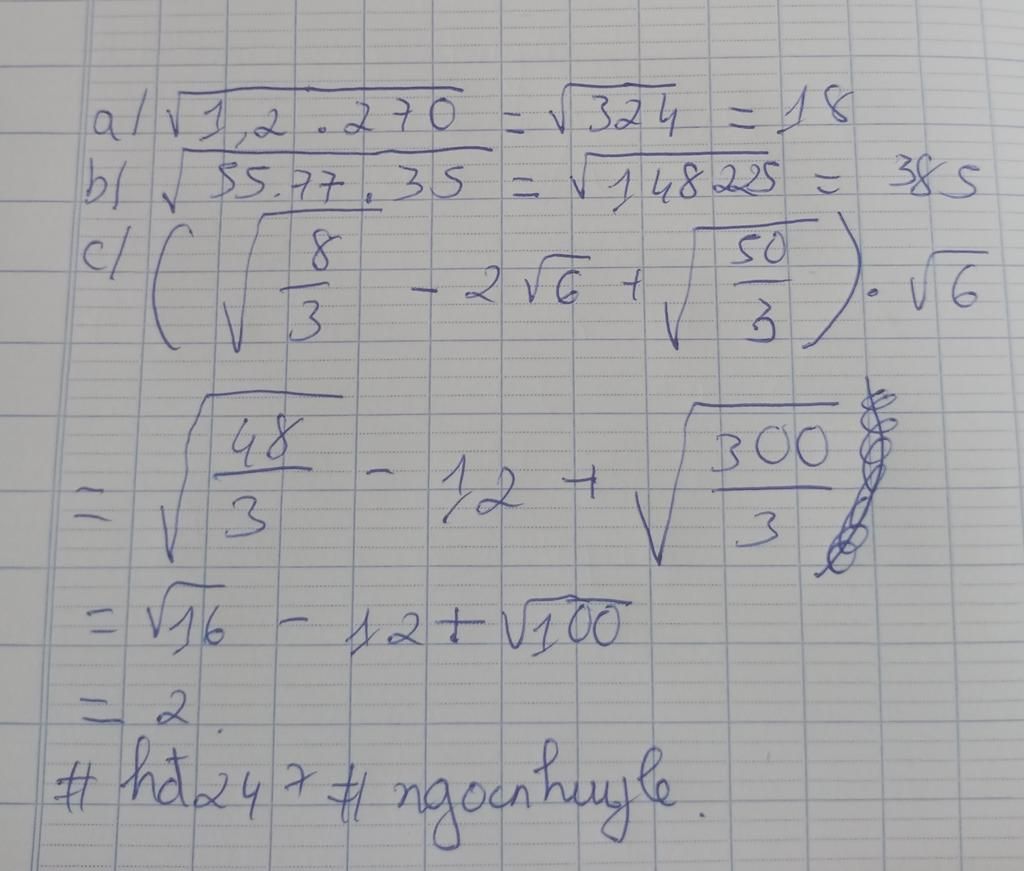 a/ √1,2 . 270 = √324 = 18
b/ √55.77.35 = √148225 = 385
c/ (√8/3 - 2√6 + √50/3) . √6
= √48/3 - 12 + √300/3
= √16 - 12 + √100
= 2.
# hđ247 # ngocnhuyle.